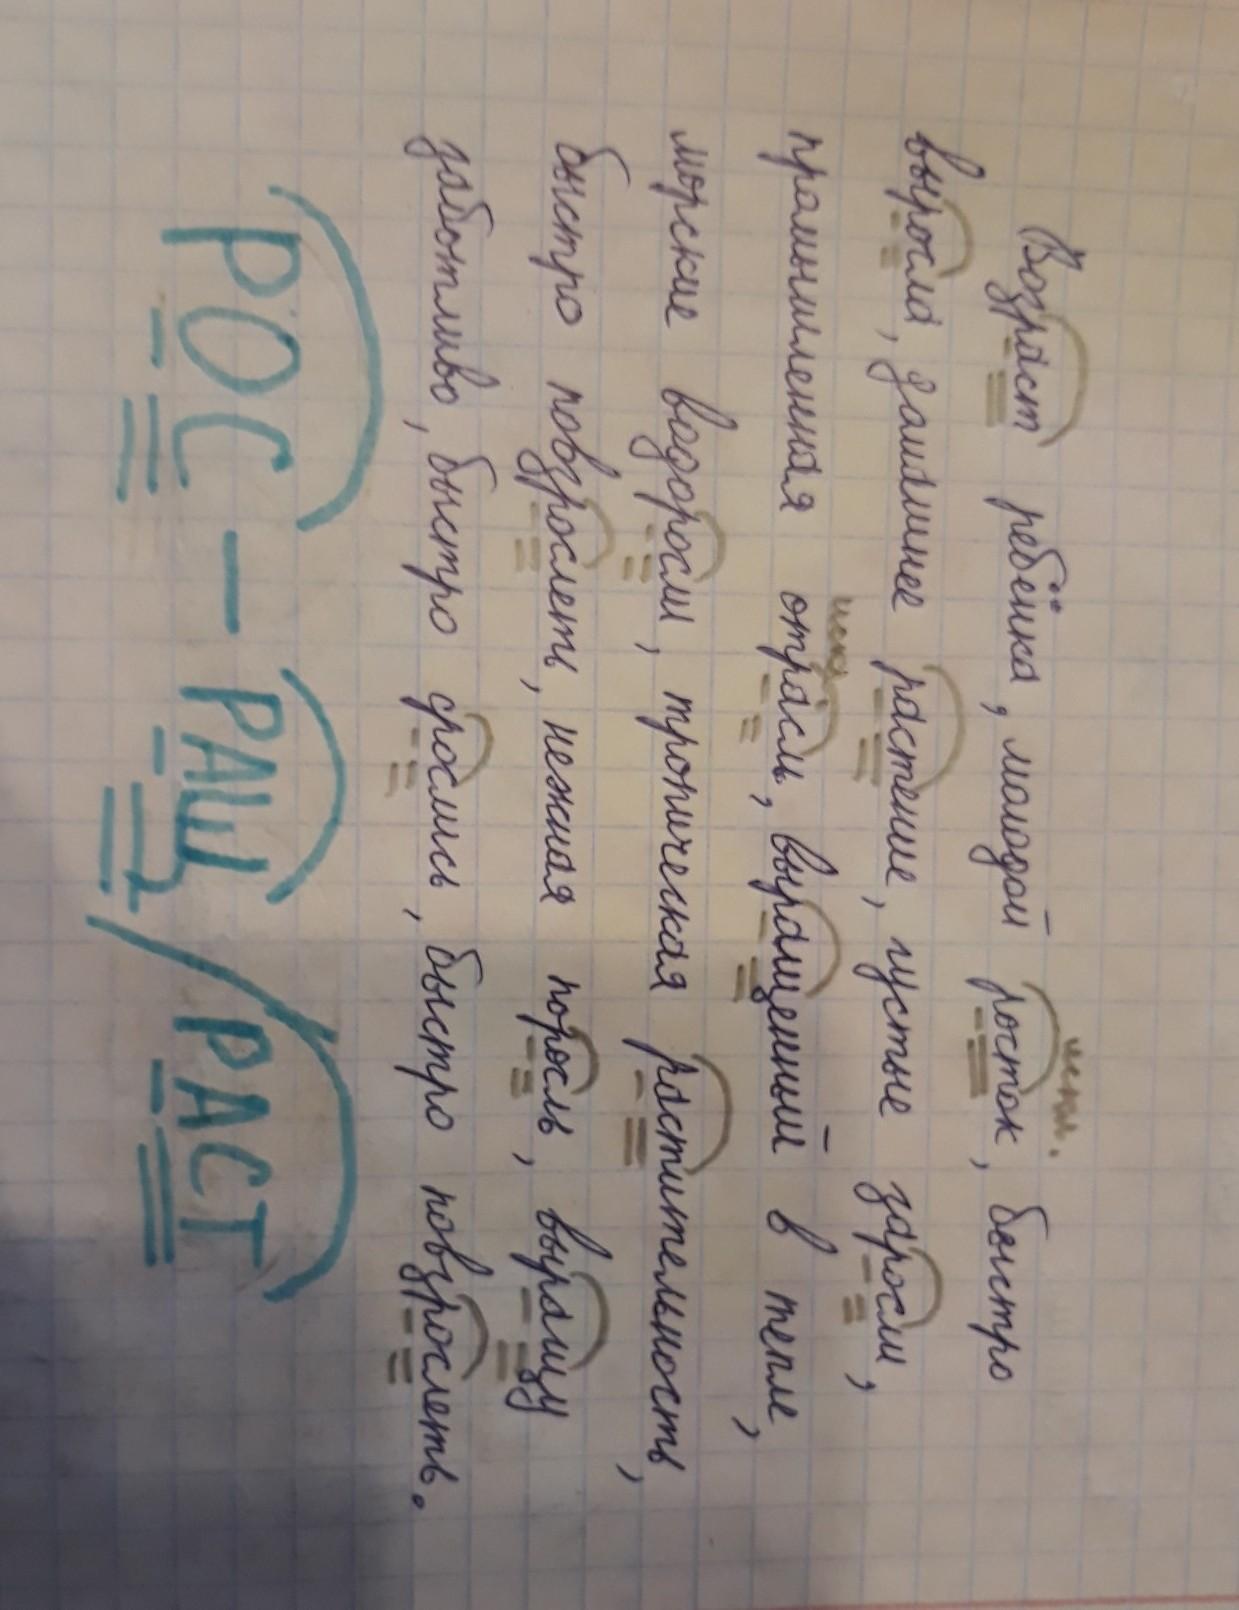 Возраст ребёнка, молодой росток, быстро
искл.
выросла, домашнее растение, густые заросли,
промышленная отрасль, выращенный в тепле,
искл.
морские водоросли, тропическая растительность,
быстро повзрослеть, нежная поросль, выращу
заботливо, быстро срослись, быстро повзрослеть.
РОС – РАЩ / РАСТ